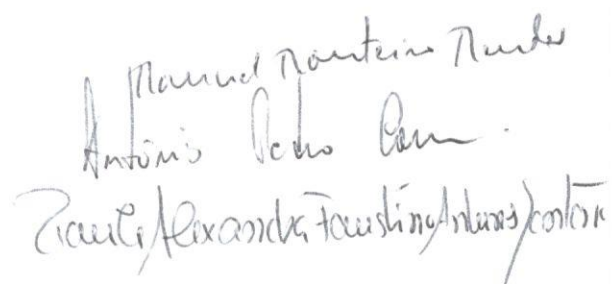 Manuel Monteiro Mendes
António Pedro
Alexandra Faustino Antunes